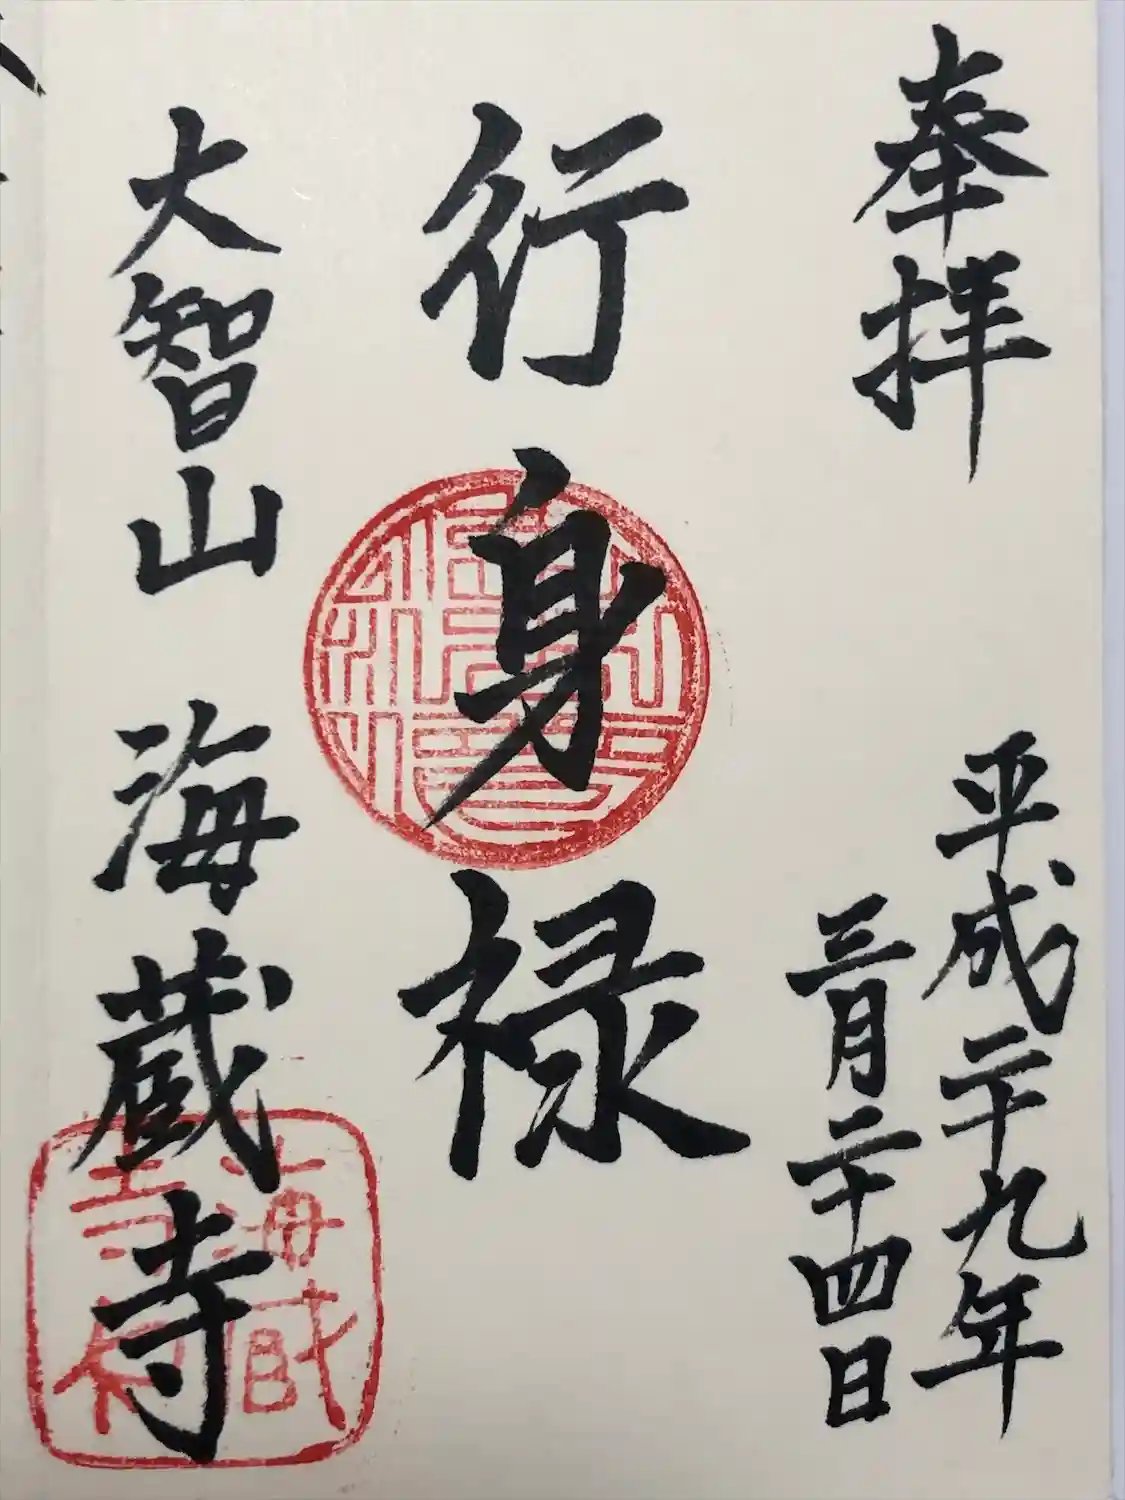 奉拝
平成二十九年
三月二十四日
行身禄
大智山 海蔵寺
海蔵
寺印